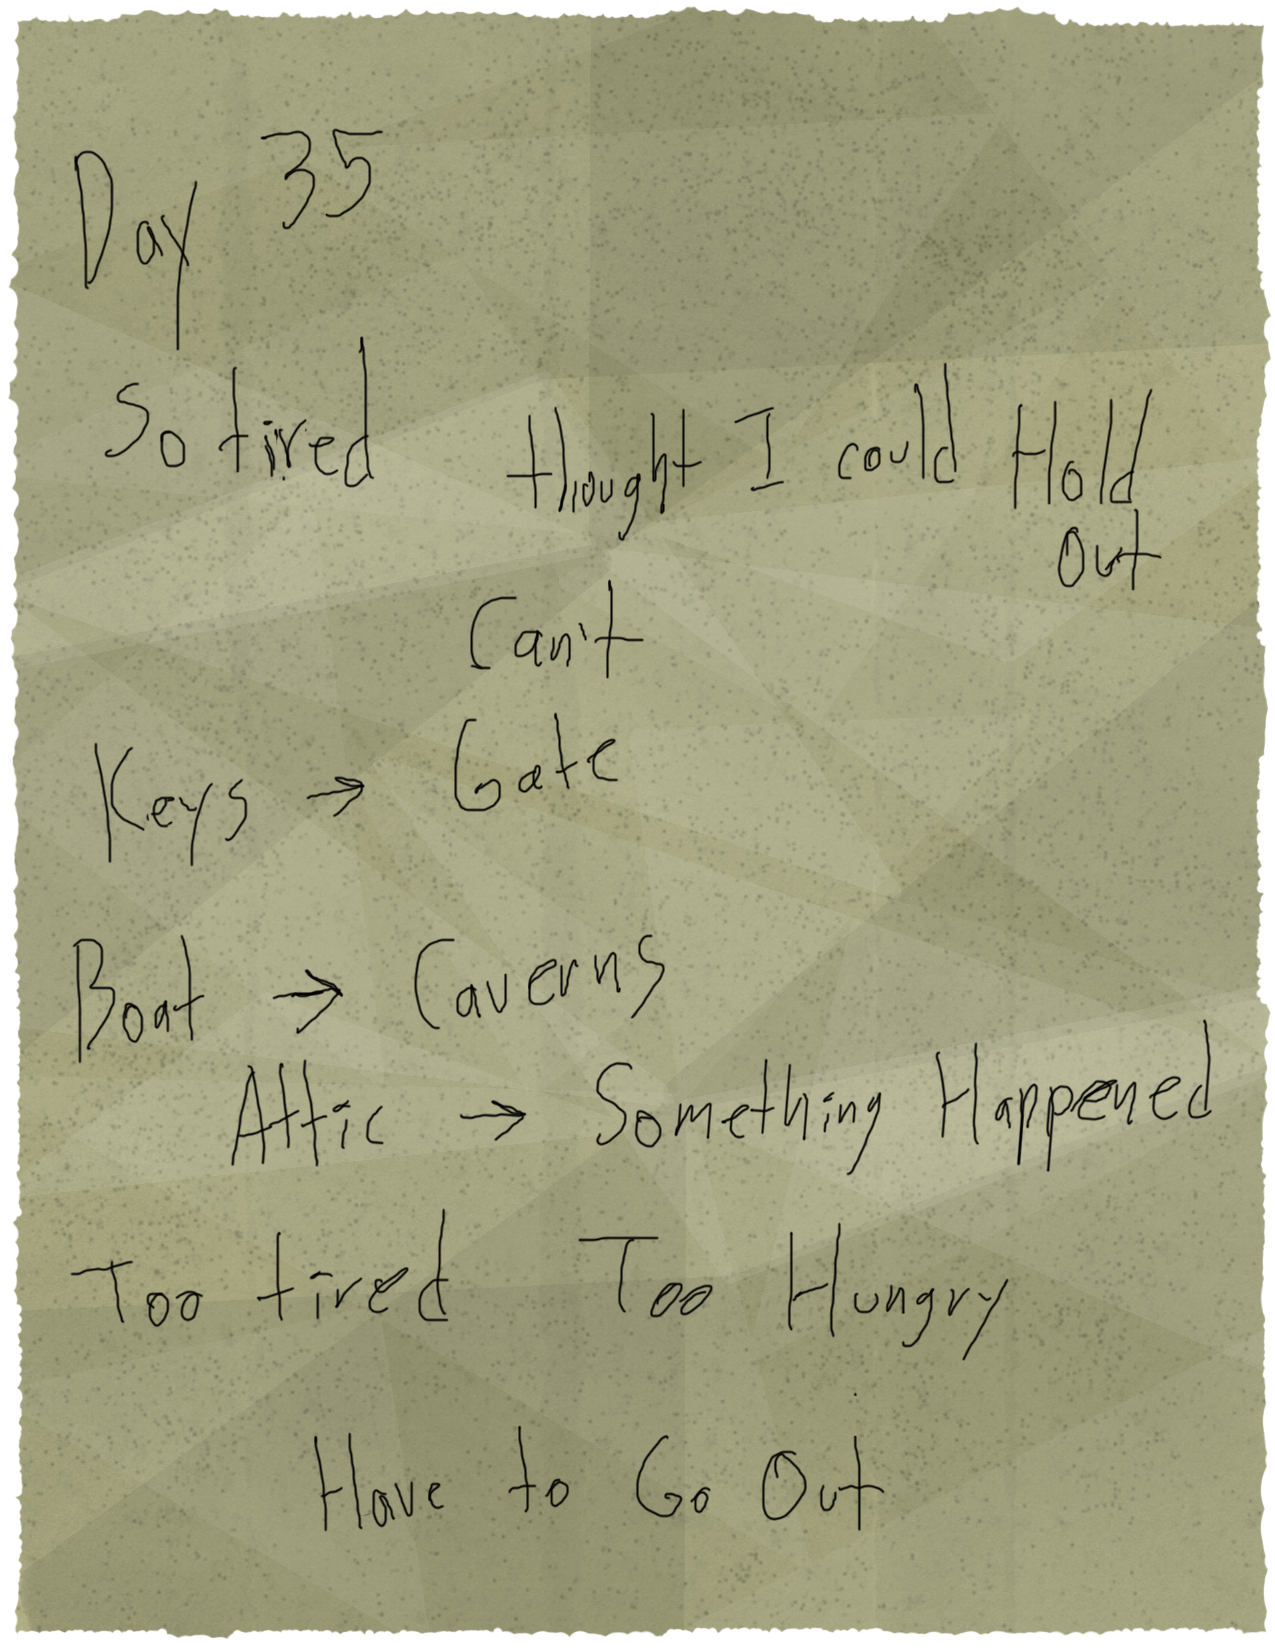 Day 35
So tired thought I could Hold
Out
Can't
Keys → Gate
Boat → Caverns
Attic → Something Happened
Too tired Too Hungry
Have to Go Out